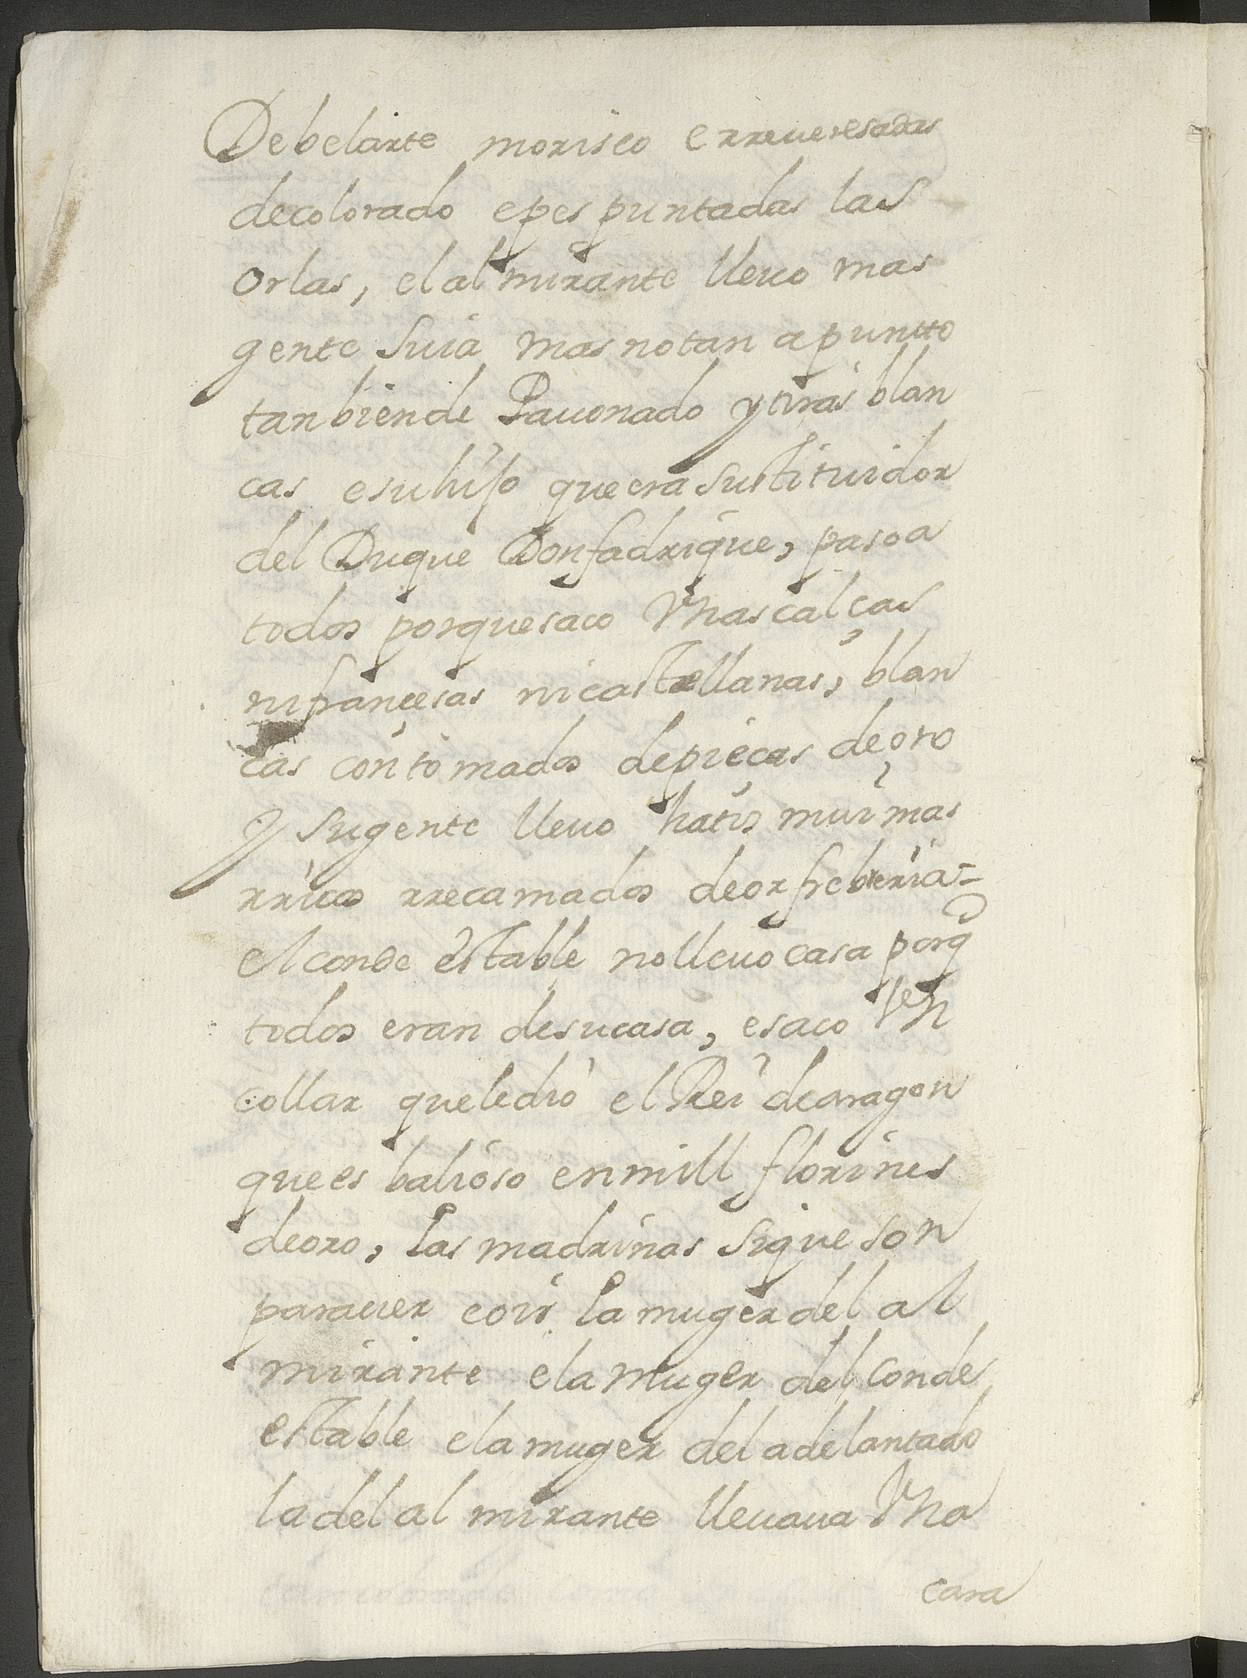 Debelarte morisco erreuesadas
decolorado epespuntadas las
orlas, elalmirante lleuo mas
gente suia mas notan apuntto
tanbiende Pauonado ytiras blan
cas esuhijo queera sustituidor
del Duque Donfadrique, pasoa
todos porquesaco Vnascalças
nifrançesas nicastellanas, blan
cas contomados depieças deoro
y sugente lleuo hatos mui mas
rricos rrecamados deorfrebreria=
elcondeestable nolleuocasa porq̃
todos eran desucasa, esaco Vn
collar queledio el Rei dearagon
quees balioso enmill florines
deoro, las madrinas sique son
parauer eoir la muger del al
mirante ela muger del conde
estable ela muger del adelantado
ladel al mirante lleuaua Vna
cara